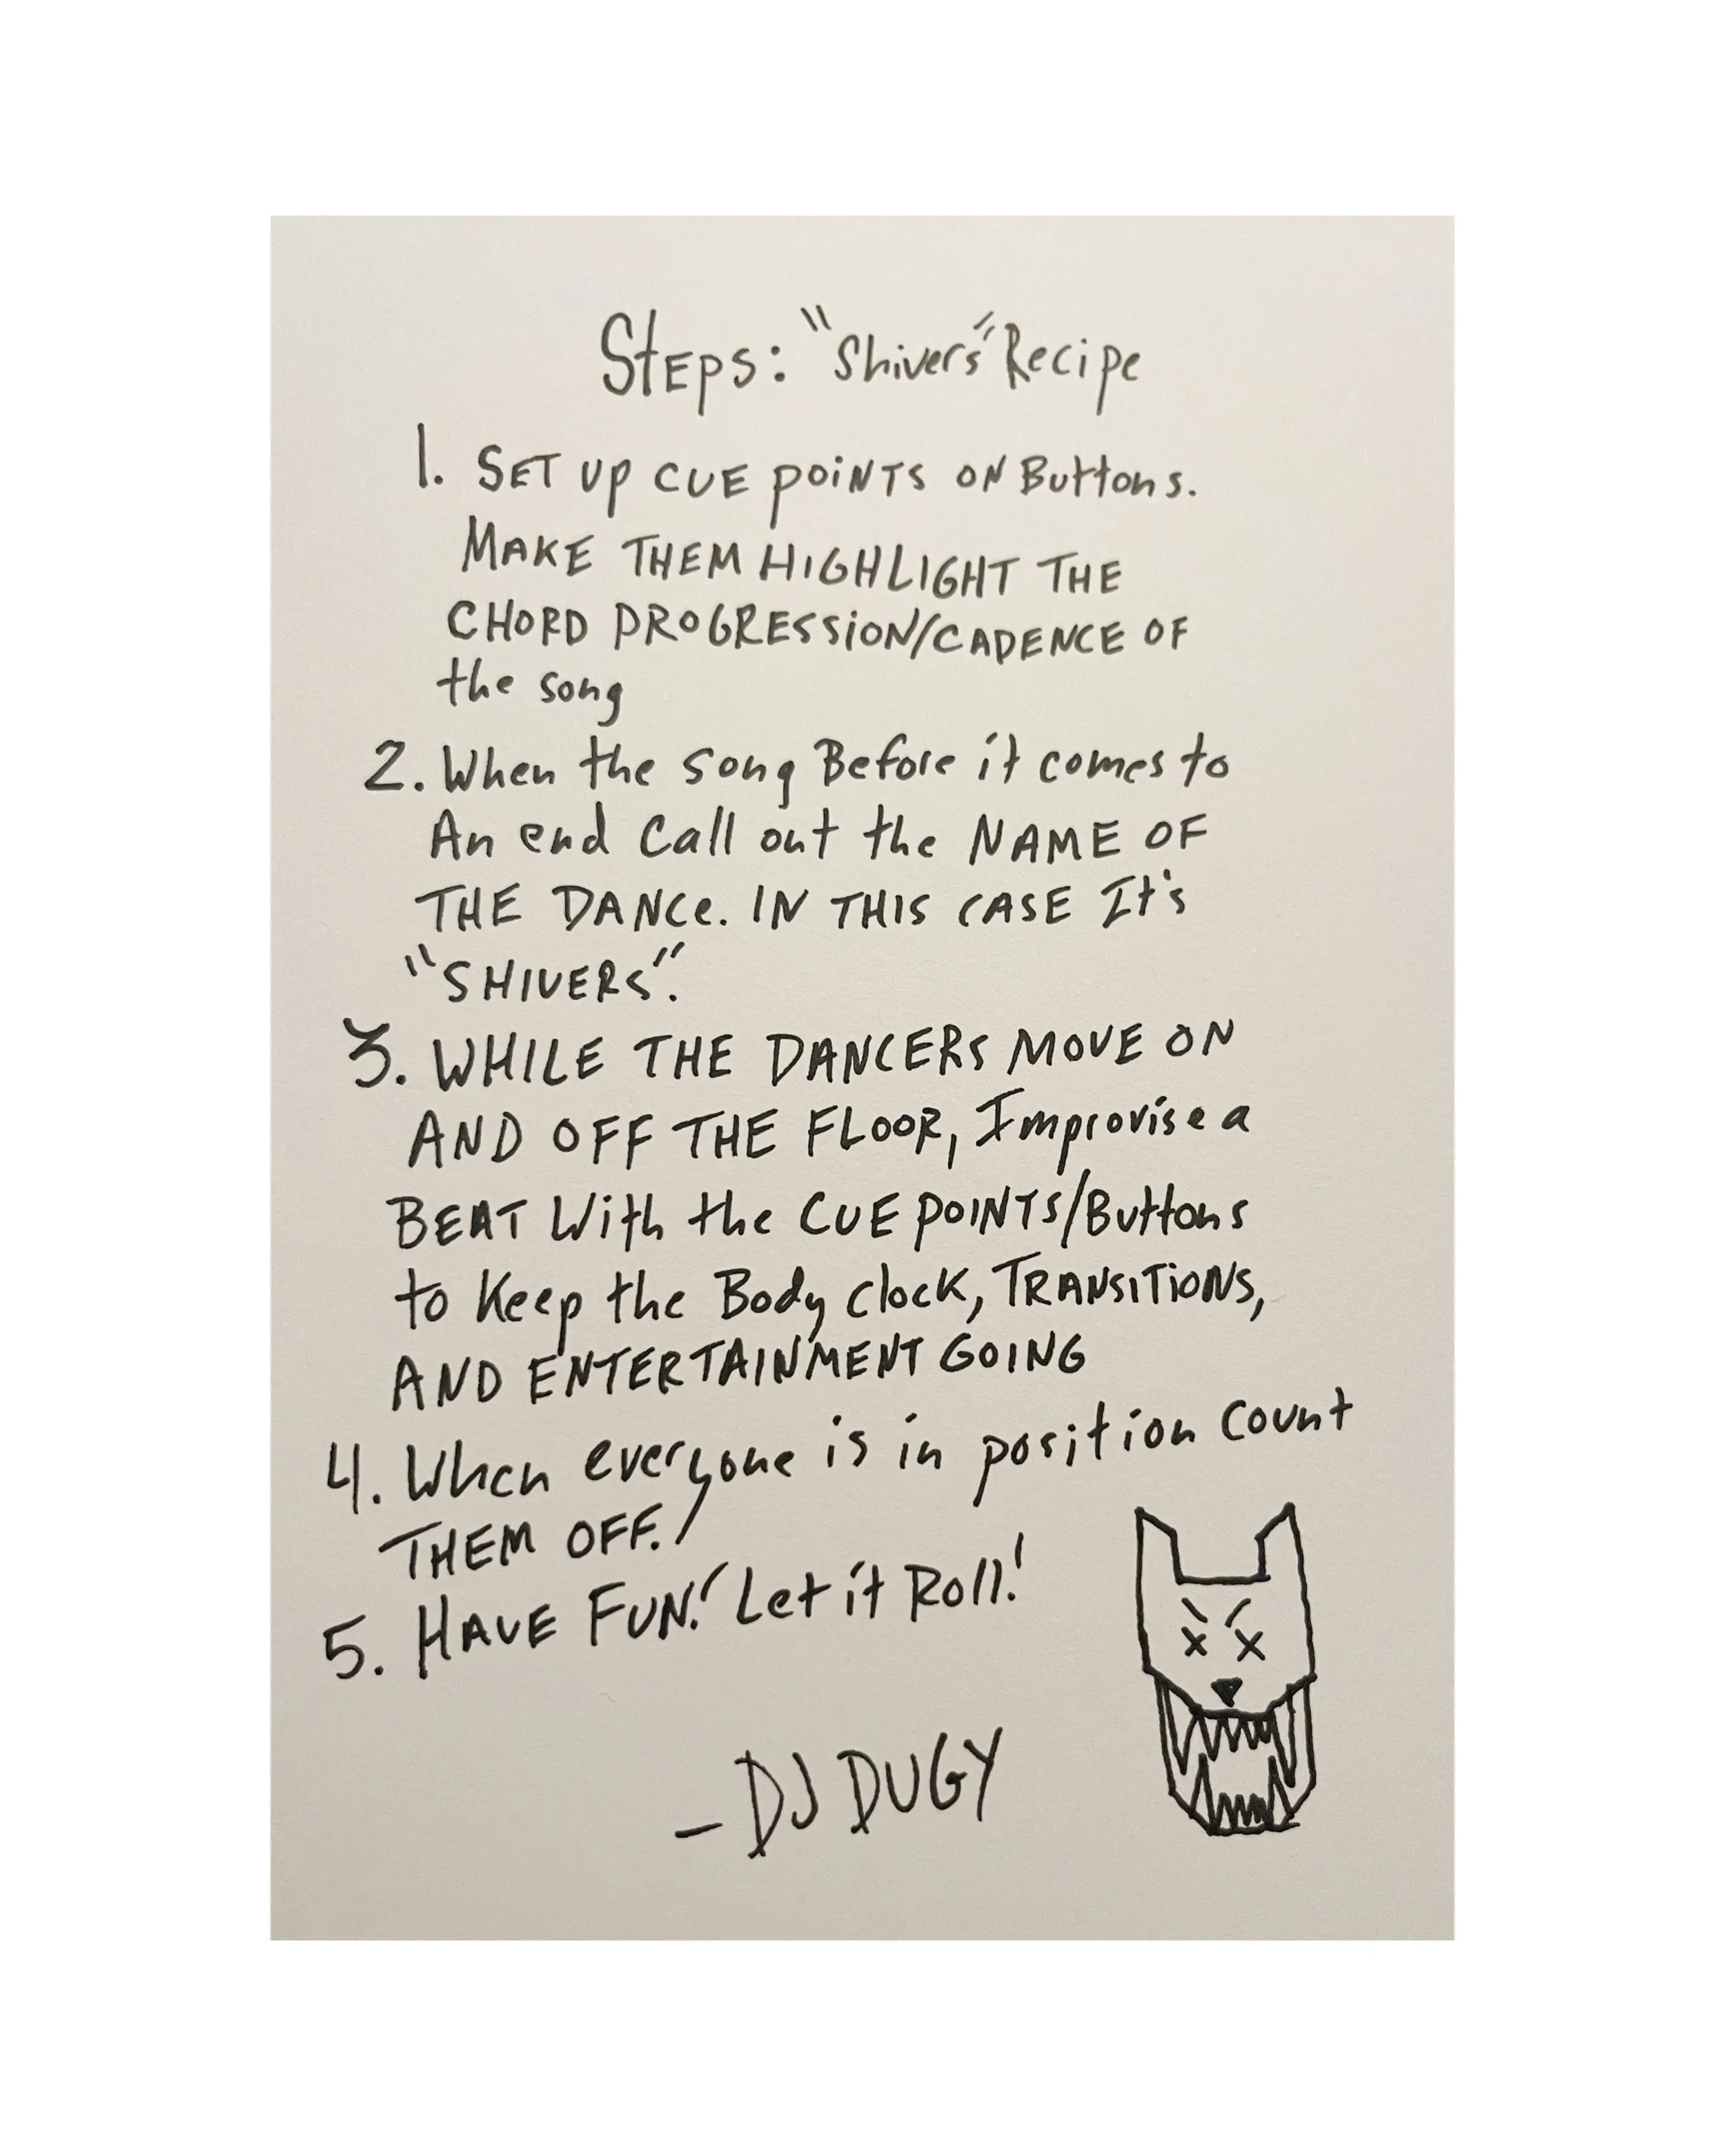 Steps: "Shivers" Recipe
1. SET UP CUE POINTS ON Buttons.
MAKE THEM HIGHLIGHT THE
CHORD PROGRESSION/CADENCE OF
the song
2. When the song Before it comes to
An end Call out the NAME OF
THE DANCe. IN THIS CASE It's
"SHIVERS".
3. WHILE THE DANCERS MOVE ON
AND OFF THE FLOOR, Improvise a
BEAT With the CUE POINTS/Buttons
to Keep the Body Clock, TRANSITIONS,
AND ENTERTAINMENT GOING
4. When everyone is in position Count
THEM OFF.
5. HAVE FUN! Let it Roll!
- DJ DUGY